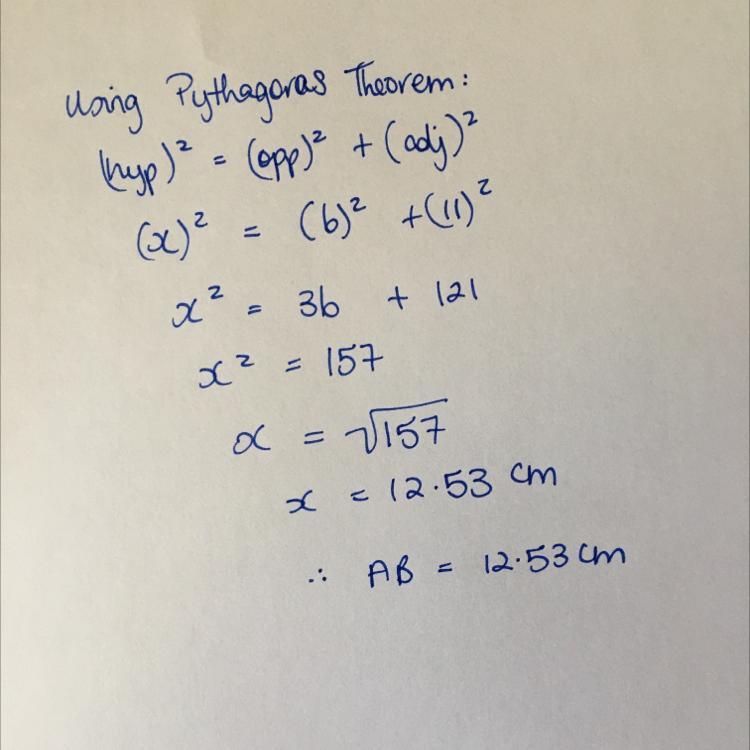 Using Pythagoras Theorem:
(hyp)² = (opp)² + (adj)²
(x)² = (6)² + (11)²
x² = 36 + 121
x² = 157
x = √157
x = 12.53 cm
∴ AB = 12.53 cm